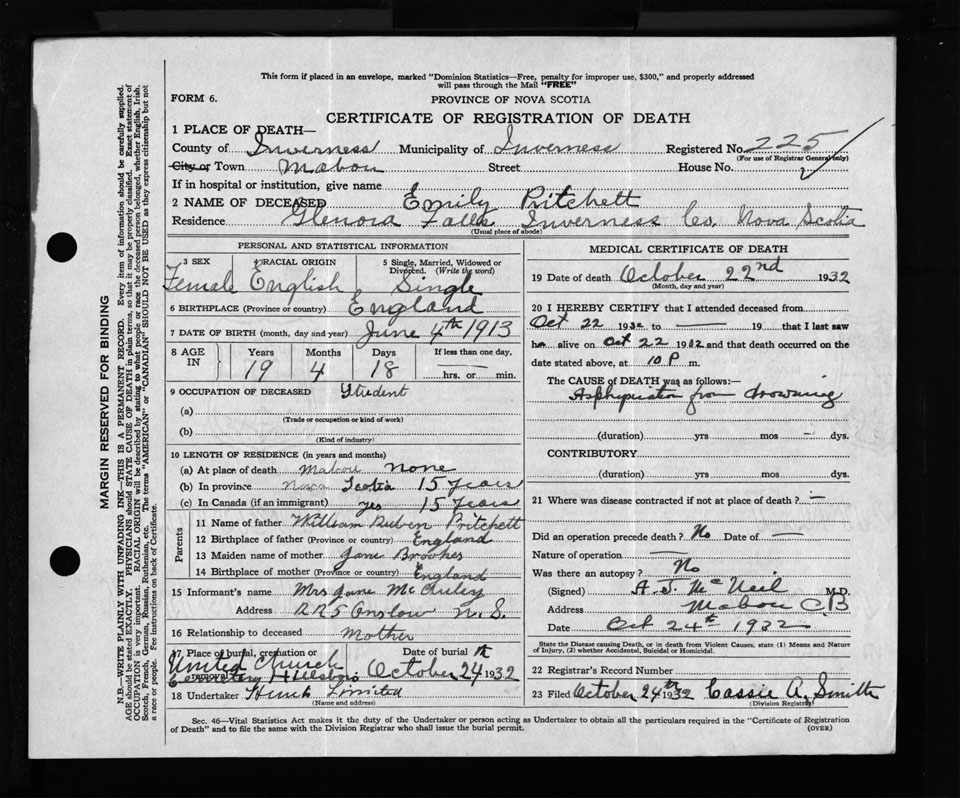 This form if placed in an envelope, marked "Dominion Statistics—Free, penalty for improper use, $300," and properly addressed
will pass through the Mail "FREE"
FORM 6.
PROVINCE OF NOVA SCOTIA
CERTIFICATE OF REGISTRATION OF DEATH
1 PLACE OF DEATH—
County of Inverness Municipality of Inverness Registered No. 225
(For use of Registrar General only)
City or Town Mabou Street House No.
If in hospital or institution, give name
2 NAME OF DECEASED Emily Pritchett
Residence Glenora Falls Inverness Co. Nova Scotia
(Usual place of abode)
PERSONAL AND STATISTICAL INFORMATION
3 SEX 4 RACIAL ORIGIN 5 Single, Married, Widowed or Divorced. (Write the word)
Female English Single
6 BIRTHPLACE (Province or country) England
7 DATE OF BIRTH (month, day and year) June 4th 1913
8 AGE IN Years Months Days If less than one day,
19 4 18 hrs. or min.
9 OCCUPATION OF DECEASED Student
(a)
(Trade or occupation or kind of work)
(b)
(Kind of industry)
10 LENGTH OF RESIDENCE (in years and months)
(a) At place of death Mabou none
(b) In province Nova Scotia 15 years
(c) In Canada (if an immigrant) yes 15 years
Parents
11 Name of father William Ruben Pritchett
12 Birthplace of father (Province or country) England
13 Maiden name of mother Jane Brookes
14 Birthplace of mother (Province or country) England
15 Informant's name Mrs Jane McCurley
Address R R 5 Onslow N. S.
16 Relationship to deceased Mother
17 Place of burial, cremation or removal Date of burial
United Church Cemetery Hillsboro October 24th 1932
18 Undertaker Hunk Limited
(Name and address)
MEDICAL CERTIFICATE OF DEATH
19 Date of death October 22nd 1932
(Month, day and year)
20 I HEREBY CERTIFY that I attended deceased from
Oct 22 1932 to — 19 that I last saw
h alive on Oct 22 1932 and that death occurred on the
date stated above, at 10 P m.
The CAUSE OF DEATH was as follows:
Asphyxiation from drowning
(duration) yrs mos — dys.
CONTRIBUTORY
(duration) yrs mos dys.
21 Where was disease contracted if not at place of death? —
Did an operation precede death? No Date of —
Nature of operation —
Was there an autopsy? No
(Signed) A. J. McNeil M.D.
Address Mabou C B
Date Oct 24th 1932
State the Disease causing Death, or in death from Violent causes, state (1) Means and Nature of Injury, (2) whether Accidental, Suicidal or Homicidal.
22 Registrar's Record Number
23 Filed October 24th 1932 Cassie A. Smith
(Division Registrar)
Sec. 46—Vital Statistics Act makes it the duty of the Undertaker or person acting as Undertaker to obtain all the particulars required in the "Certificate of Registration
of Death" and to file the same with the Division Registrar who shall issue the burial permit.
(OVER)
MARGIN RESERVED FOR BINDING
N.B.—WRITE PLAINLY WITH UNFADING INK—THIS IS A PERMANENT RECORD. Every item of information should be carefully supplied.
AGE should be stated EXACTLY. PHYSICIANS should STATE CAUSE OF DEATH in plain terms, so that it may be properly classified. Exact statement of
OCCUPATION is very important. RACIAL ORIGIN will be described by stating to what people or race the deceased person belonged, whether English, Irish,
Scotch, French, German, Russian, Ruthenian, etc. The terms "AMERICAN" or "CANADIAN" SHOULD NOT BE USED as they express citizenship but not
a race or people. See instructions on back of Certificate.